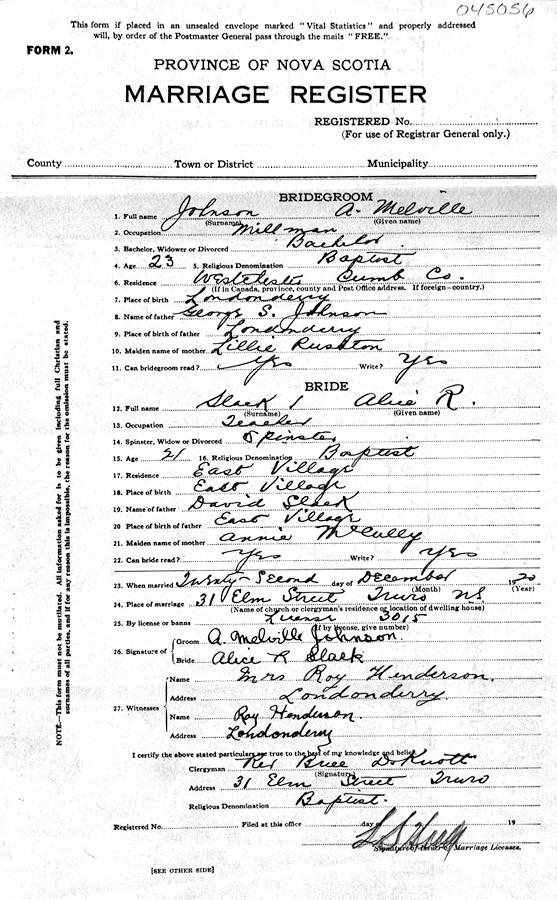 045056
This form if placed in an unsealed envelope marked "Vital Statistics" and properly addressed
will, by order of the Postmaster General pass through the mails "FREE."
FORM 2.
PROVINCE OF NOVA SCOTIA
MARRIAGE REGISTER
REGISTERED No.
(For use of Registrar General only.)
County Town or District Municipality
NOTE.—This form must not be mutilated. All information asked for is to be given including full Christian and
surnames of all parties, and if for any reason this is impossible, the reason for the omission must be stated.
BRIDEGROOM
1. Full name Johnson A. Melville
(Surname) (Given name)
2. Occupation Millman
3. Bachelor, Widower or Divorced Bachelor
4. Age 23 5. Religious Denomination Baptist
6. Residence Westchester Cumb Co.
(If in Canada, province, county and Post Office address. If foreign—country.)
7. Place of birth Londonderry
8. Name of father George S. Johnson
9. Place of birth of father Londonderry
10. Maiden name of mother Lillie Rushton
11. Can bridegroom read? Yes Write? Yes
BRIDE
12. Full name Slack Alice R.
(Surname) (Given name)
13. Occupation Teacher
14. Spinster, Widow or Divorced Spinster
15. Age 21 16. Religious Denomination Baptist
17. Residence East Village
18. Place of birth East Village
19. Name of father David Slack
20 Place of birth of father East Village
21. Maiden name of mother Annie McCully
22. Can bride read? Yes Write? Yes
23. When married Twenty-Second day of December 1920
(Month) (Year)
24. Place of marriage 31 Elm Street Truro N.S.
(Name of church or clergyman's residence or location of dwelling house)
25. By license or banns License 3015
(If by license, give number)
26. Signature of Groom A. Melville Johnson.
Bride Alice R Slack
27. Witnesses
Name Mrs Roy Henderson.
Address Londonderry.
Name Roy Henderson.
Address Londonderry
I certify the above stated particulars are true to the best of my knowledge and belief.
Clergyman Rev
(Signature)
Address 31 Elm Street Truro
Religious Denomination Baptist.
Registered No. Filed at this office day 19
Signature of Issuer of Marriage Licenses.
[SEE OTHER SIDE]